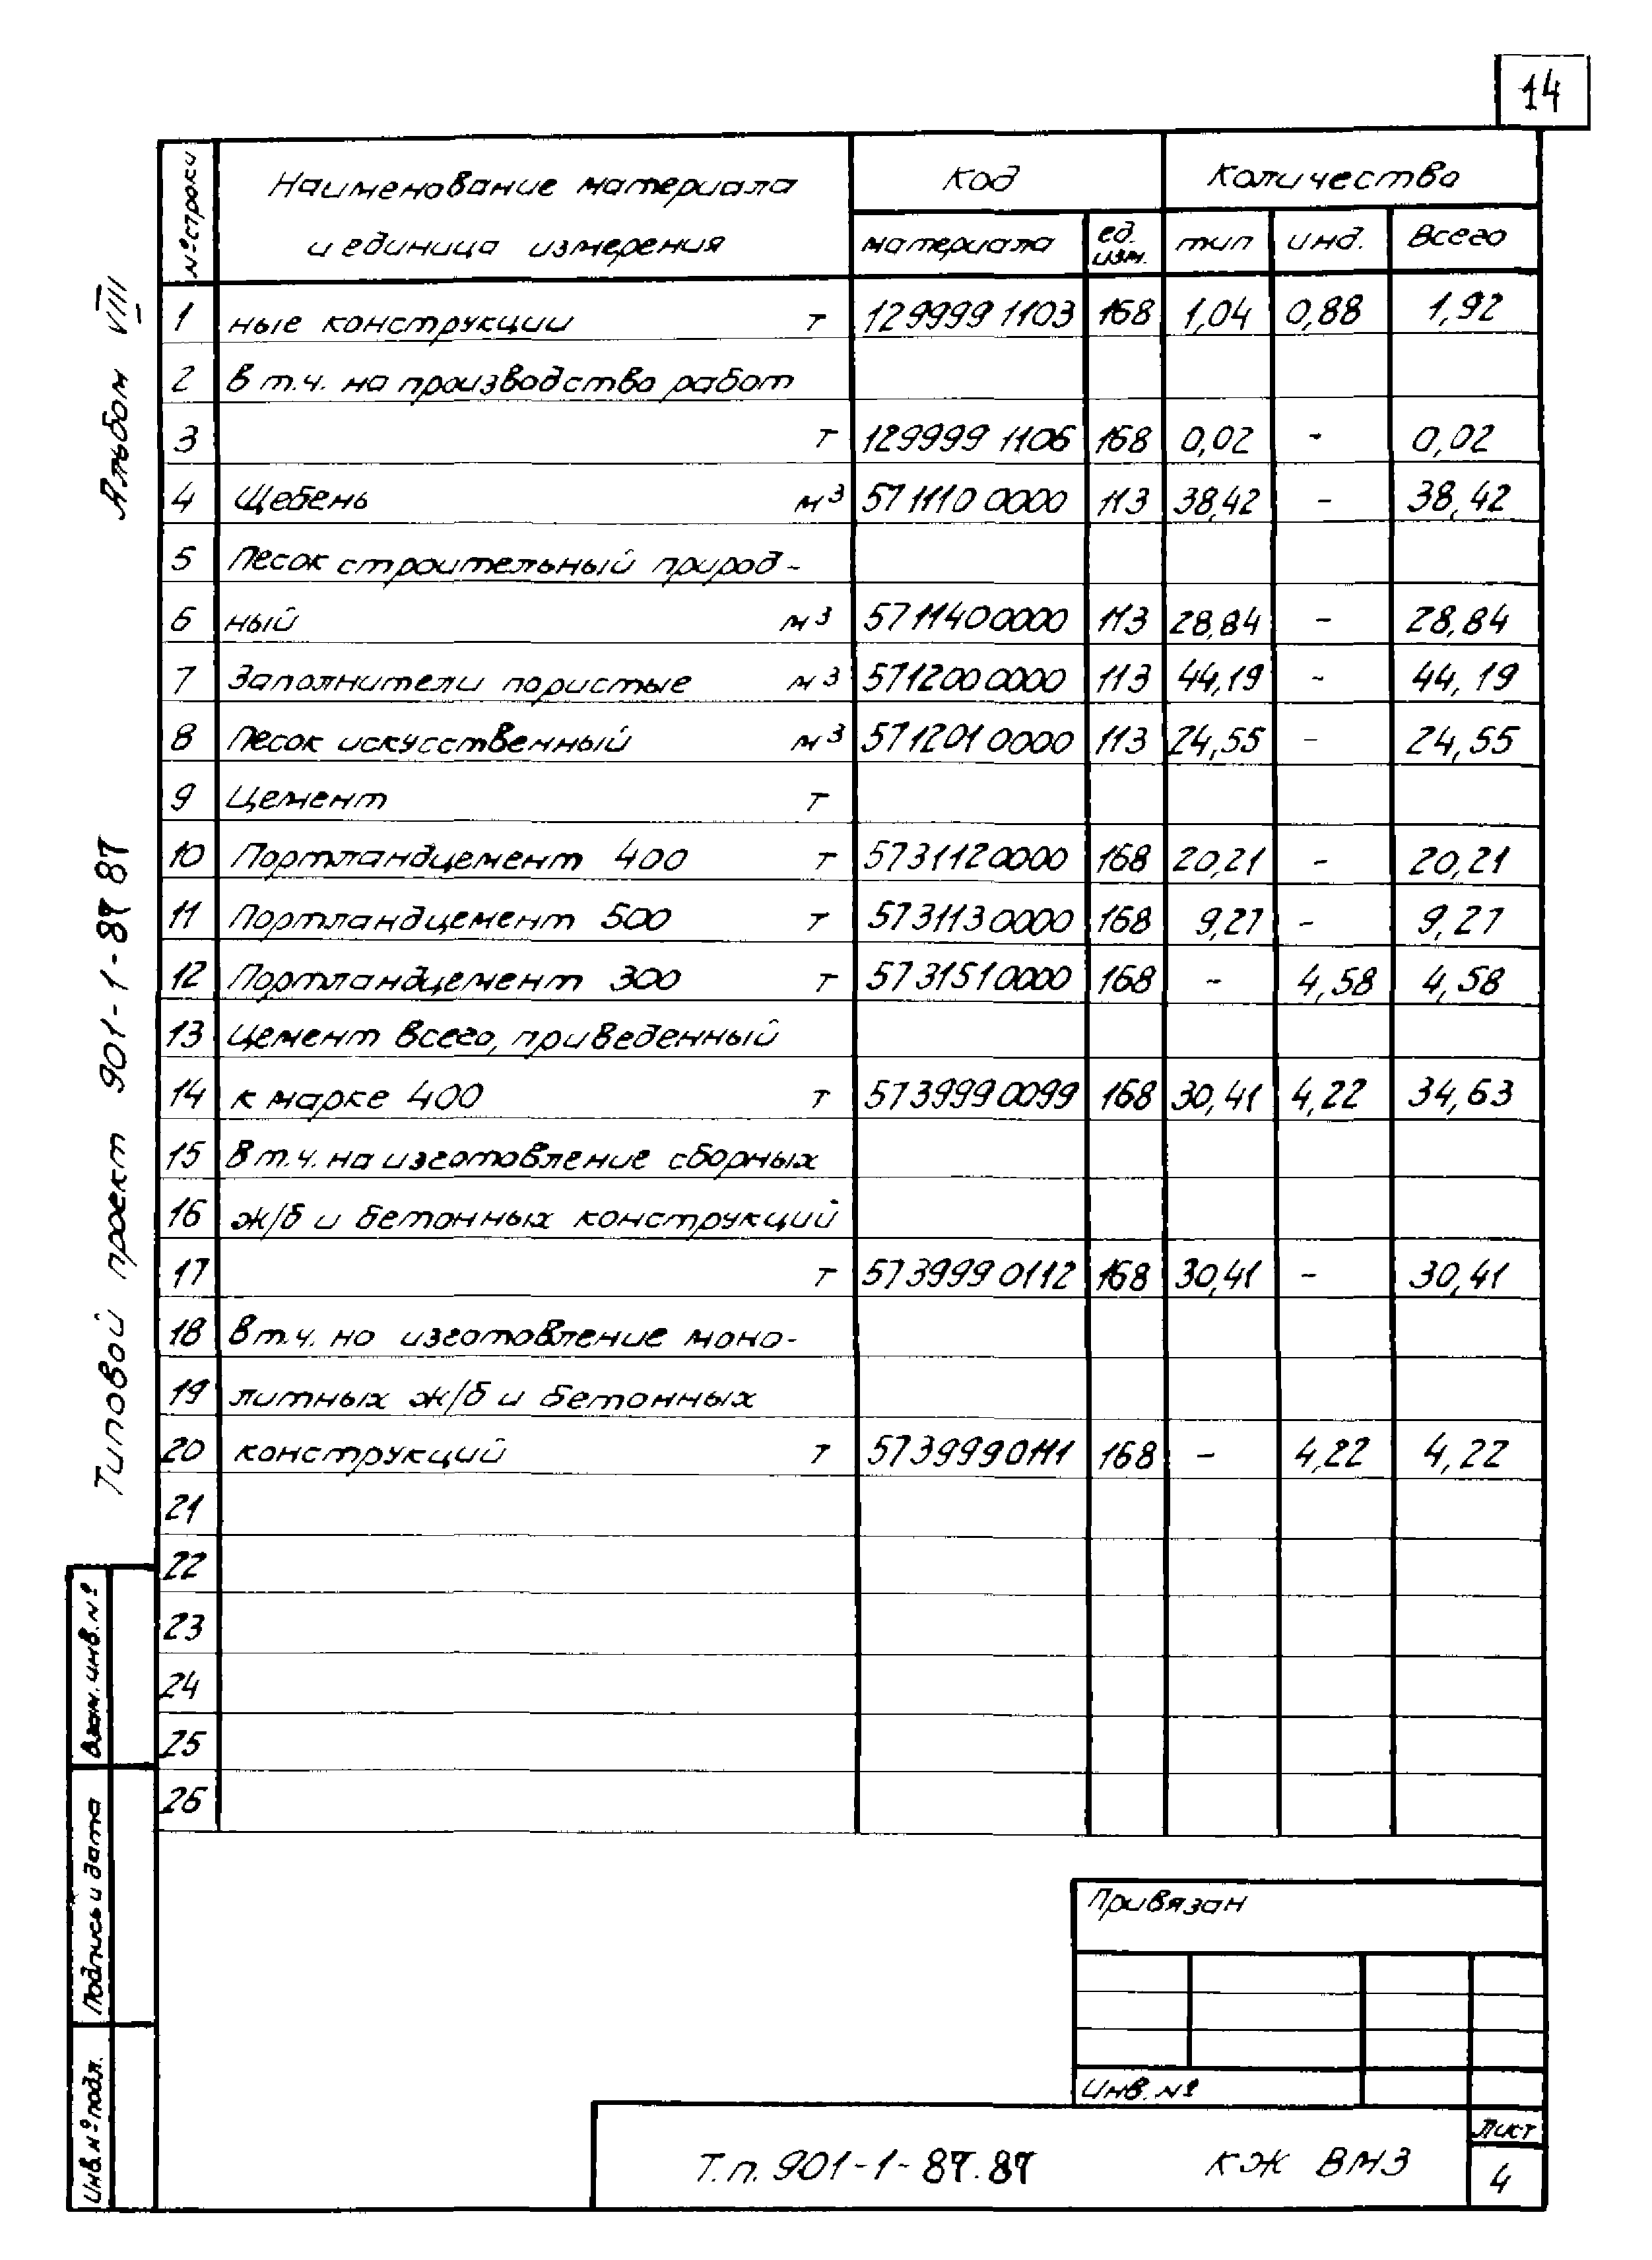 14
№ строки | Наименование материала и единица измерения | Код | Количество
материала | ед. изм. | тип | инд. | Всего
1 ные конструкции т 129999 1103 168 1,04 0,88 1,92
2 В т.ч. на производство работ
3 т 129999 1106 168 0,02 - 0,02
4 Щебень м³ 571110 0000 113 38,42 - 38,42
5 Песок строительный природ-
6 ный м³ 571140 0000 113 28,84 - 28,84
7 Заполнители пористые м³ 571200 0000 113 44,19 - 44,19
8 Песок искусственный м³ 571201 0000 113 24,55 - 24,55
9 Цемент т
10 Портландцемент 400 т 573112 0000 168 20,21 - 20,21
11 Портландцемент 500 т 573113 0000 168 9,27 - 9,27
12 Портландцемент 300 т 573151 0000 168 - 4,58 4,58
13 Цемент всего, приведенный
14 к марке 400 т 573999 0099 168 30,41 4,22 34,63
15 В т.ч. на изготовление сборных
16 ж/б и бетонных конструкций
17 т 573999 0112 168 30,41 - 30,41
18 В т.ч. на изготовление моно-
19 литных ж/б и бетонных
20 конструкций т 573999 0111 168 - 4,22 4,22
21
22
23
24
25
26
Альбом VIII
Типовой проект 901-1-87 87
Взам. инв. №
Подпись и дата
Инв. № подл.
Привязан
Инв. №
Т.п. 901-1-87.87 КЖ ВМ3
Лист
4